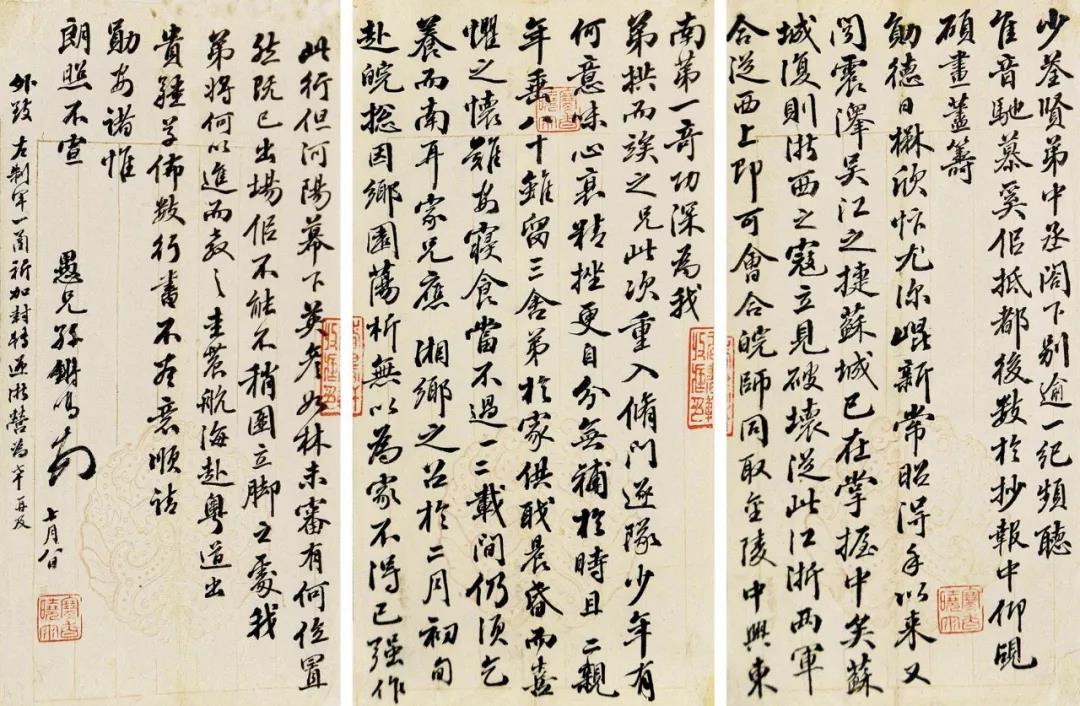 少荃賢弟中丞閣下別逾一紀頻聽
隹音馳慕奚似抵都後數於抄報中仰覘
碩畫藎籌
勛德日楙欣忭尤深崐新常昭得手以來又
聞震澤吳江之捷蘇城已在掌握中矣蘇
城復則浙西之寇立見破壞從此江浙兩軍
合從西上即可會合皖師同取金陵中興東
南第一奇功深為我
弟拱而竢之兄此次重入脩門逐隊少年有
何意味心衰精挫更自分無補於時且二親
年垂八十雖留三舍弟於家供職晨昏而喜
懼之懷難安寢食當不過一二載間仍須乞
養而南耳家兄應湘鄉之召於二月初旬
赴皖揔因鄉園蕩析無以為家不得已強作
此行但河陽幕下英耆如林未審有何位置
然既已出場似不能不稍圖立腳之處我
弟將何以進而教之圭農航海赴粵道出
貴轄草佈數行書不盡意順請
勛安諸惟
朗照不宣
愚兄孫鏘鳴頓 七月八日
外致左制軍一函祈加封轉遞浙營為幸再及